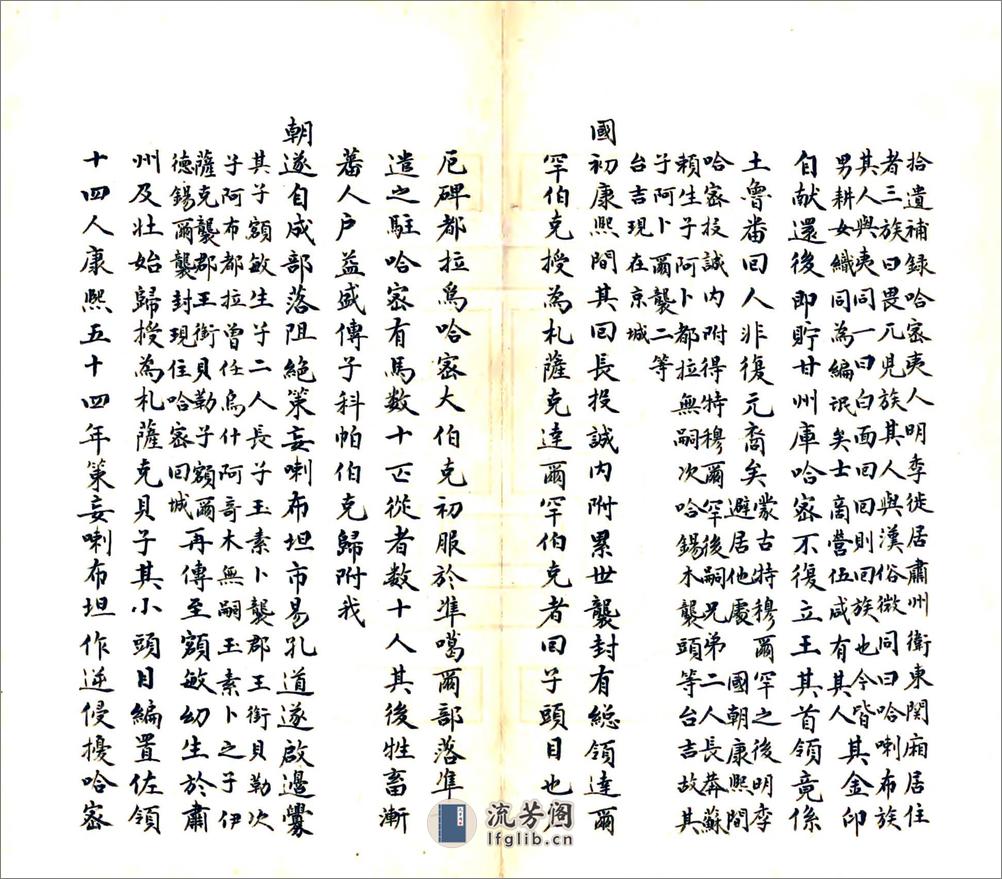 拾遺補録哈密夷人明季徙居肅州衛東関廂居住
者三族曰畏兀児族其人與漢俗微同曰哈喇布族
其人與夷同一曰白面回回則回族也今皆
男耕女織同為編氓矣士商営伍咸有其人
其金印
自献還後即貯甘州庫哈密不復立王其首領竟係
土魯番回人非復元裔矣
蒙古特穆爾罕之後明季
避居他處 國朝康熙間
哈密投誠内附得特穆爾罕後嗣兄弟二人長莽蘇
頼生子阿卜都拉無嗣次哈錫木襲頭等台吉故其
子阿卜爾襲二等
台吉現在京城
國初康熙間其回長投誠内附累世襲封有総領達爾
罕伯克授為札薩克達爾罕伯克者回子頭目也
厄碑都拉為哈密大伯克初服於準噶爾部落準
遣之駐哈密有馬数十匹從者数十人其後牲畜漸
蕃人户益盛傳子科帕伯克歸附我
朝遂自成部落阻絶策妄喇布坦市易孔道遂啟邊釁
其子額敏生子二人長子玉素卜襲郡王銜貝勒次
子阿布都拉曾任烏什阿竒木無嗣玉素卜之子伊
薩克襲郡王銜貝勒子額爾
德錫爾襲封現住哈密回城
再傳至額敏幼生於肅
州及壮始歸授為札薩克貝子其小頭目編置佐領
十四人康熙五十四年策妄喇布坦作逆侵擾哈密
流芳阁
lfglib.cn